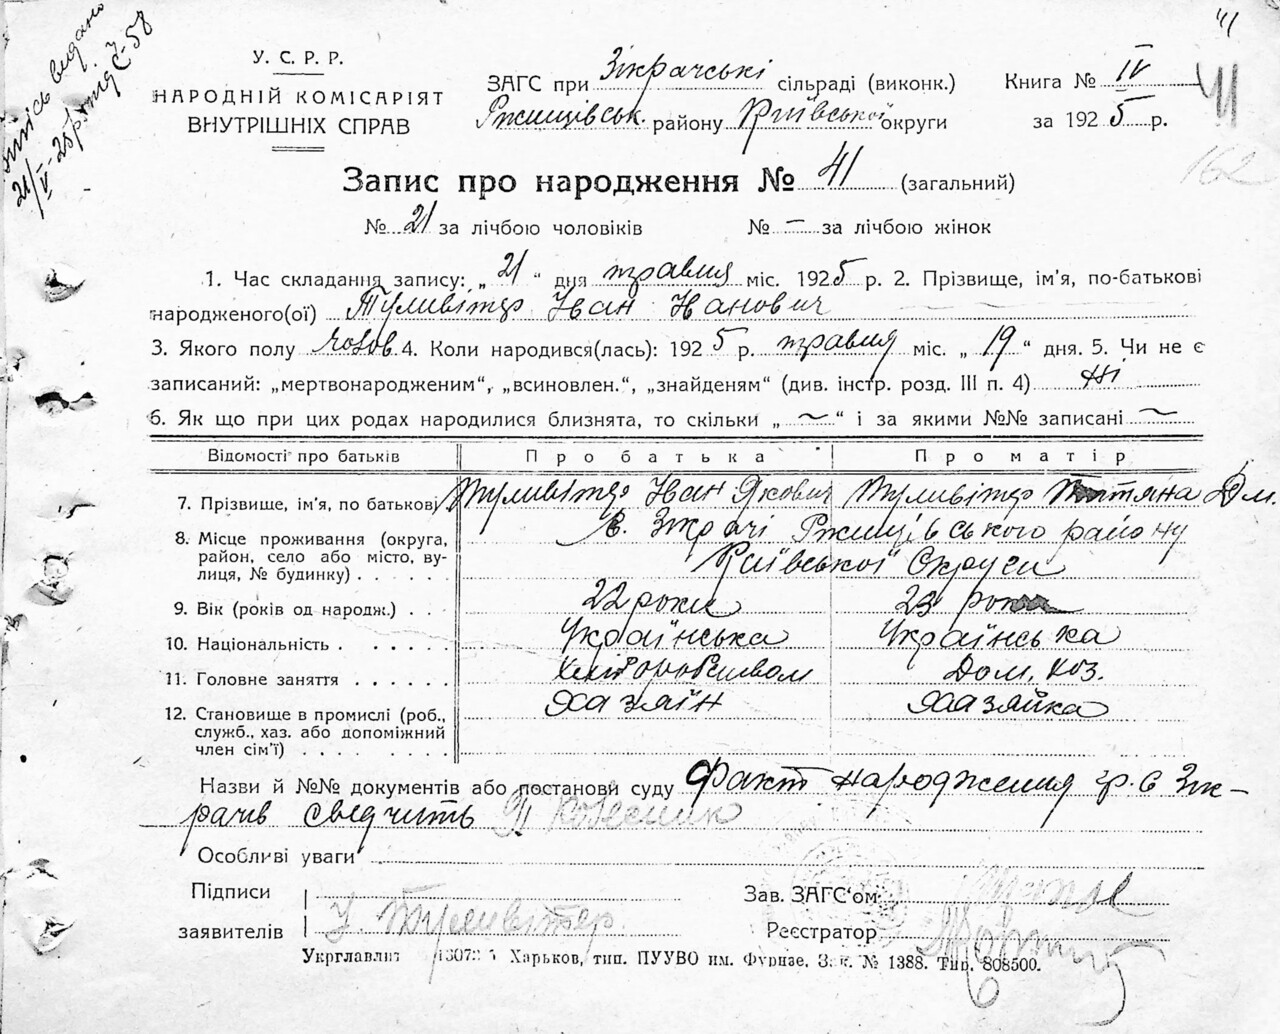 41
випись видано
21/V-25р. під Ч-58
У. С. Р. Р.
НАРОДНІЙ КОМІСАРІЯТ
ВНУТРІШНІХ СПРАВ
ЗАГС при Зікрачські сільраді (виконк.)
Ржищівськ. району Київської округи
Книга № IV
за 1925 р.
41
162
Запис про народження № 41 (загальний)
№ 21 за лічбою чоловіків № — за лічбою жінок
1. Час складання запису: „ 21 “ дня травня міс. 1925 р. 2. Прізвище, ім'я, по-батькові
народженого(ої) Туливітер Іван Іванович
3. Якого полу чолов. 4. Коли народився(лась): 1925 р. травня міс. „ 19 “ дня. 5. Чи не є
записаний: „мертвонародженим“, „всиновлен.“, „знайденям“ (див. інстр. розд. III п. 4) Ні
6. Як що при цих родах народилися близнята, то скільки „ ~ “ і за якими №№ записані ~
Відомості про батьків Про батька Про матір
7. Прізвище, ім'я, по батькові Туливітер Іван Якович Туливітер Титяна Дм.
8. Місце проживання (округа, район, село або місто, вулиця, № будинку) в. Зікрачі Ржищівського району
Київської Округи
9. Вік (років од народж.) 22 роки 23 роки
10. Національність Українська Українська
11. Головне заняття Хліборобством Дом. хоз.
12. Становище в промислі (роб., служб., хаз. або допоміжний член сім'ї) Хазяїн Хазяйка
Назви й №№ документів або постанови суду Факт народження гр. с Зік-
рачів свідчить Колесник
Особливі уваги
Підписи
заявителів І. Туливітер
Зав. ЗАГС'ом
Реєстратор
Укрглавліт Харьков, тип. ПУУВО им. Фрунзе. Зак. № 1388. Тир. 808500.